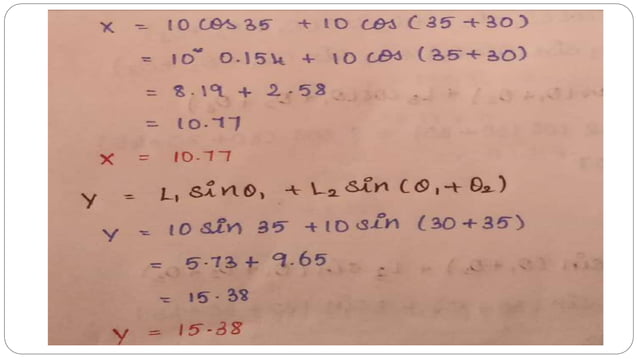 x = 10 cos 35 + 10 cos (35 + 30)
= 10* 0.154 + 10 cos (35 + 30)
= 8.19 + 2.58
= 10.77
x = 10.77
y = L₁ sin θ₁ + L₂ sin (θ₁ + θ₂)
y = 10 sin 35 + 10 sin (30 + 35)
= 5.73 + 9.65
= 15.38
y = 15.38